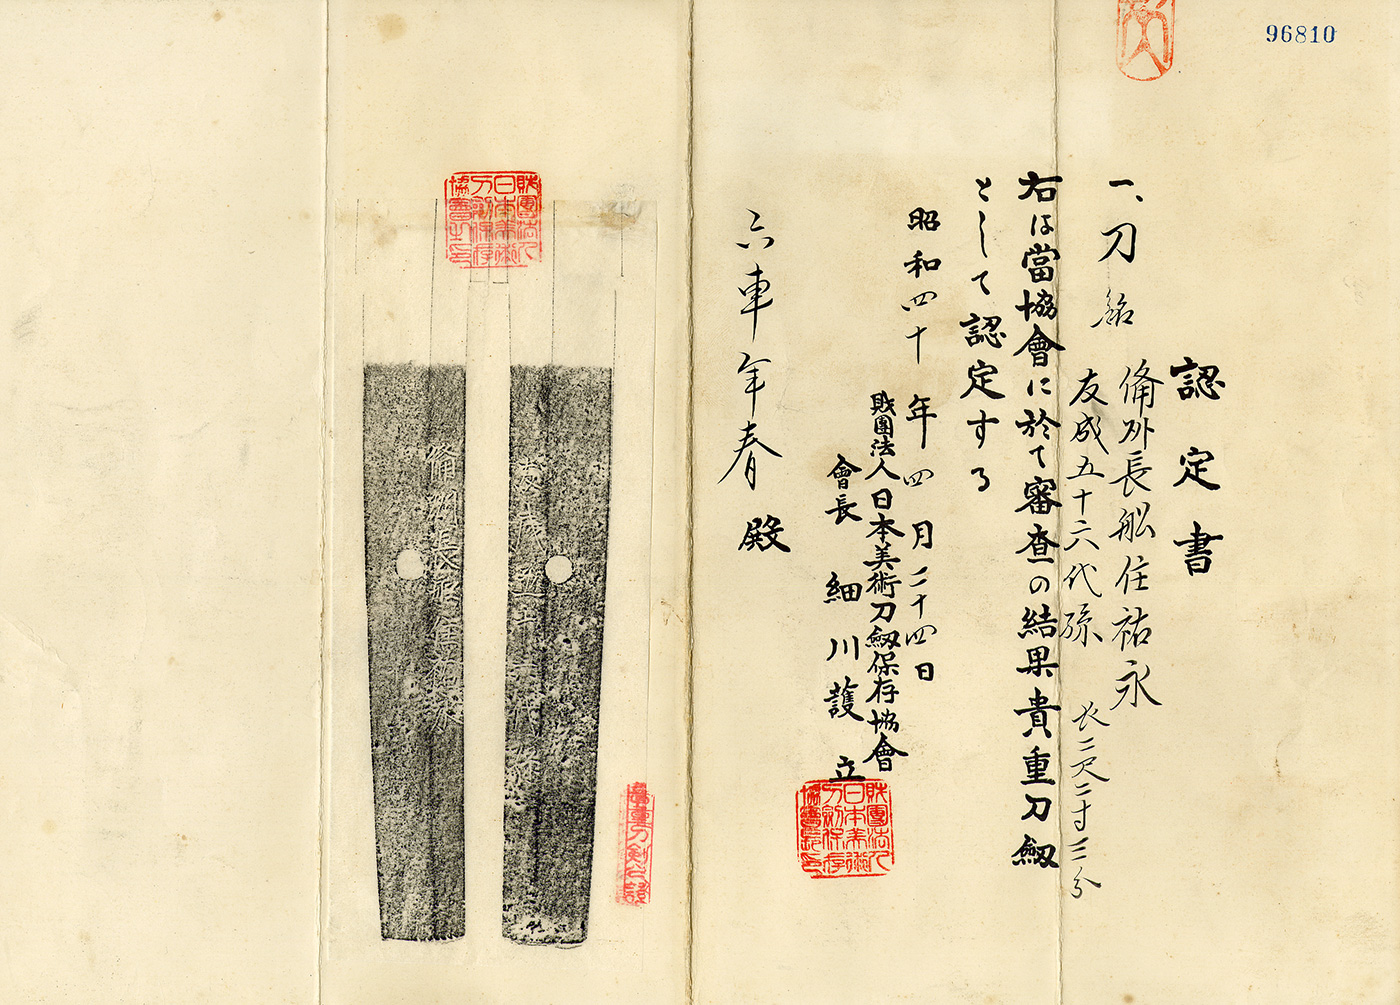 96810
認定書
一、刀 銘 備州長舩住祐永
友成五十六代孫 長二尺二寸三分
右は當協會に於て審査の結果貴重刀劔
として認定する
昭和四十年四月二十四日
財團法人日本美術刀劔保存協會
會長 細川護立
財團法人日本美術刀劔保存協會長印
六車年春殿
財團法人日本美術刀劔保存協會之印
友成五十六代孫
備州長舩住祐永
貴重刀剣之證